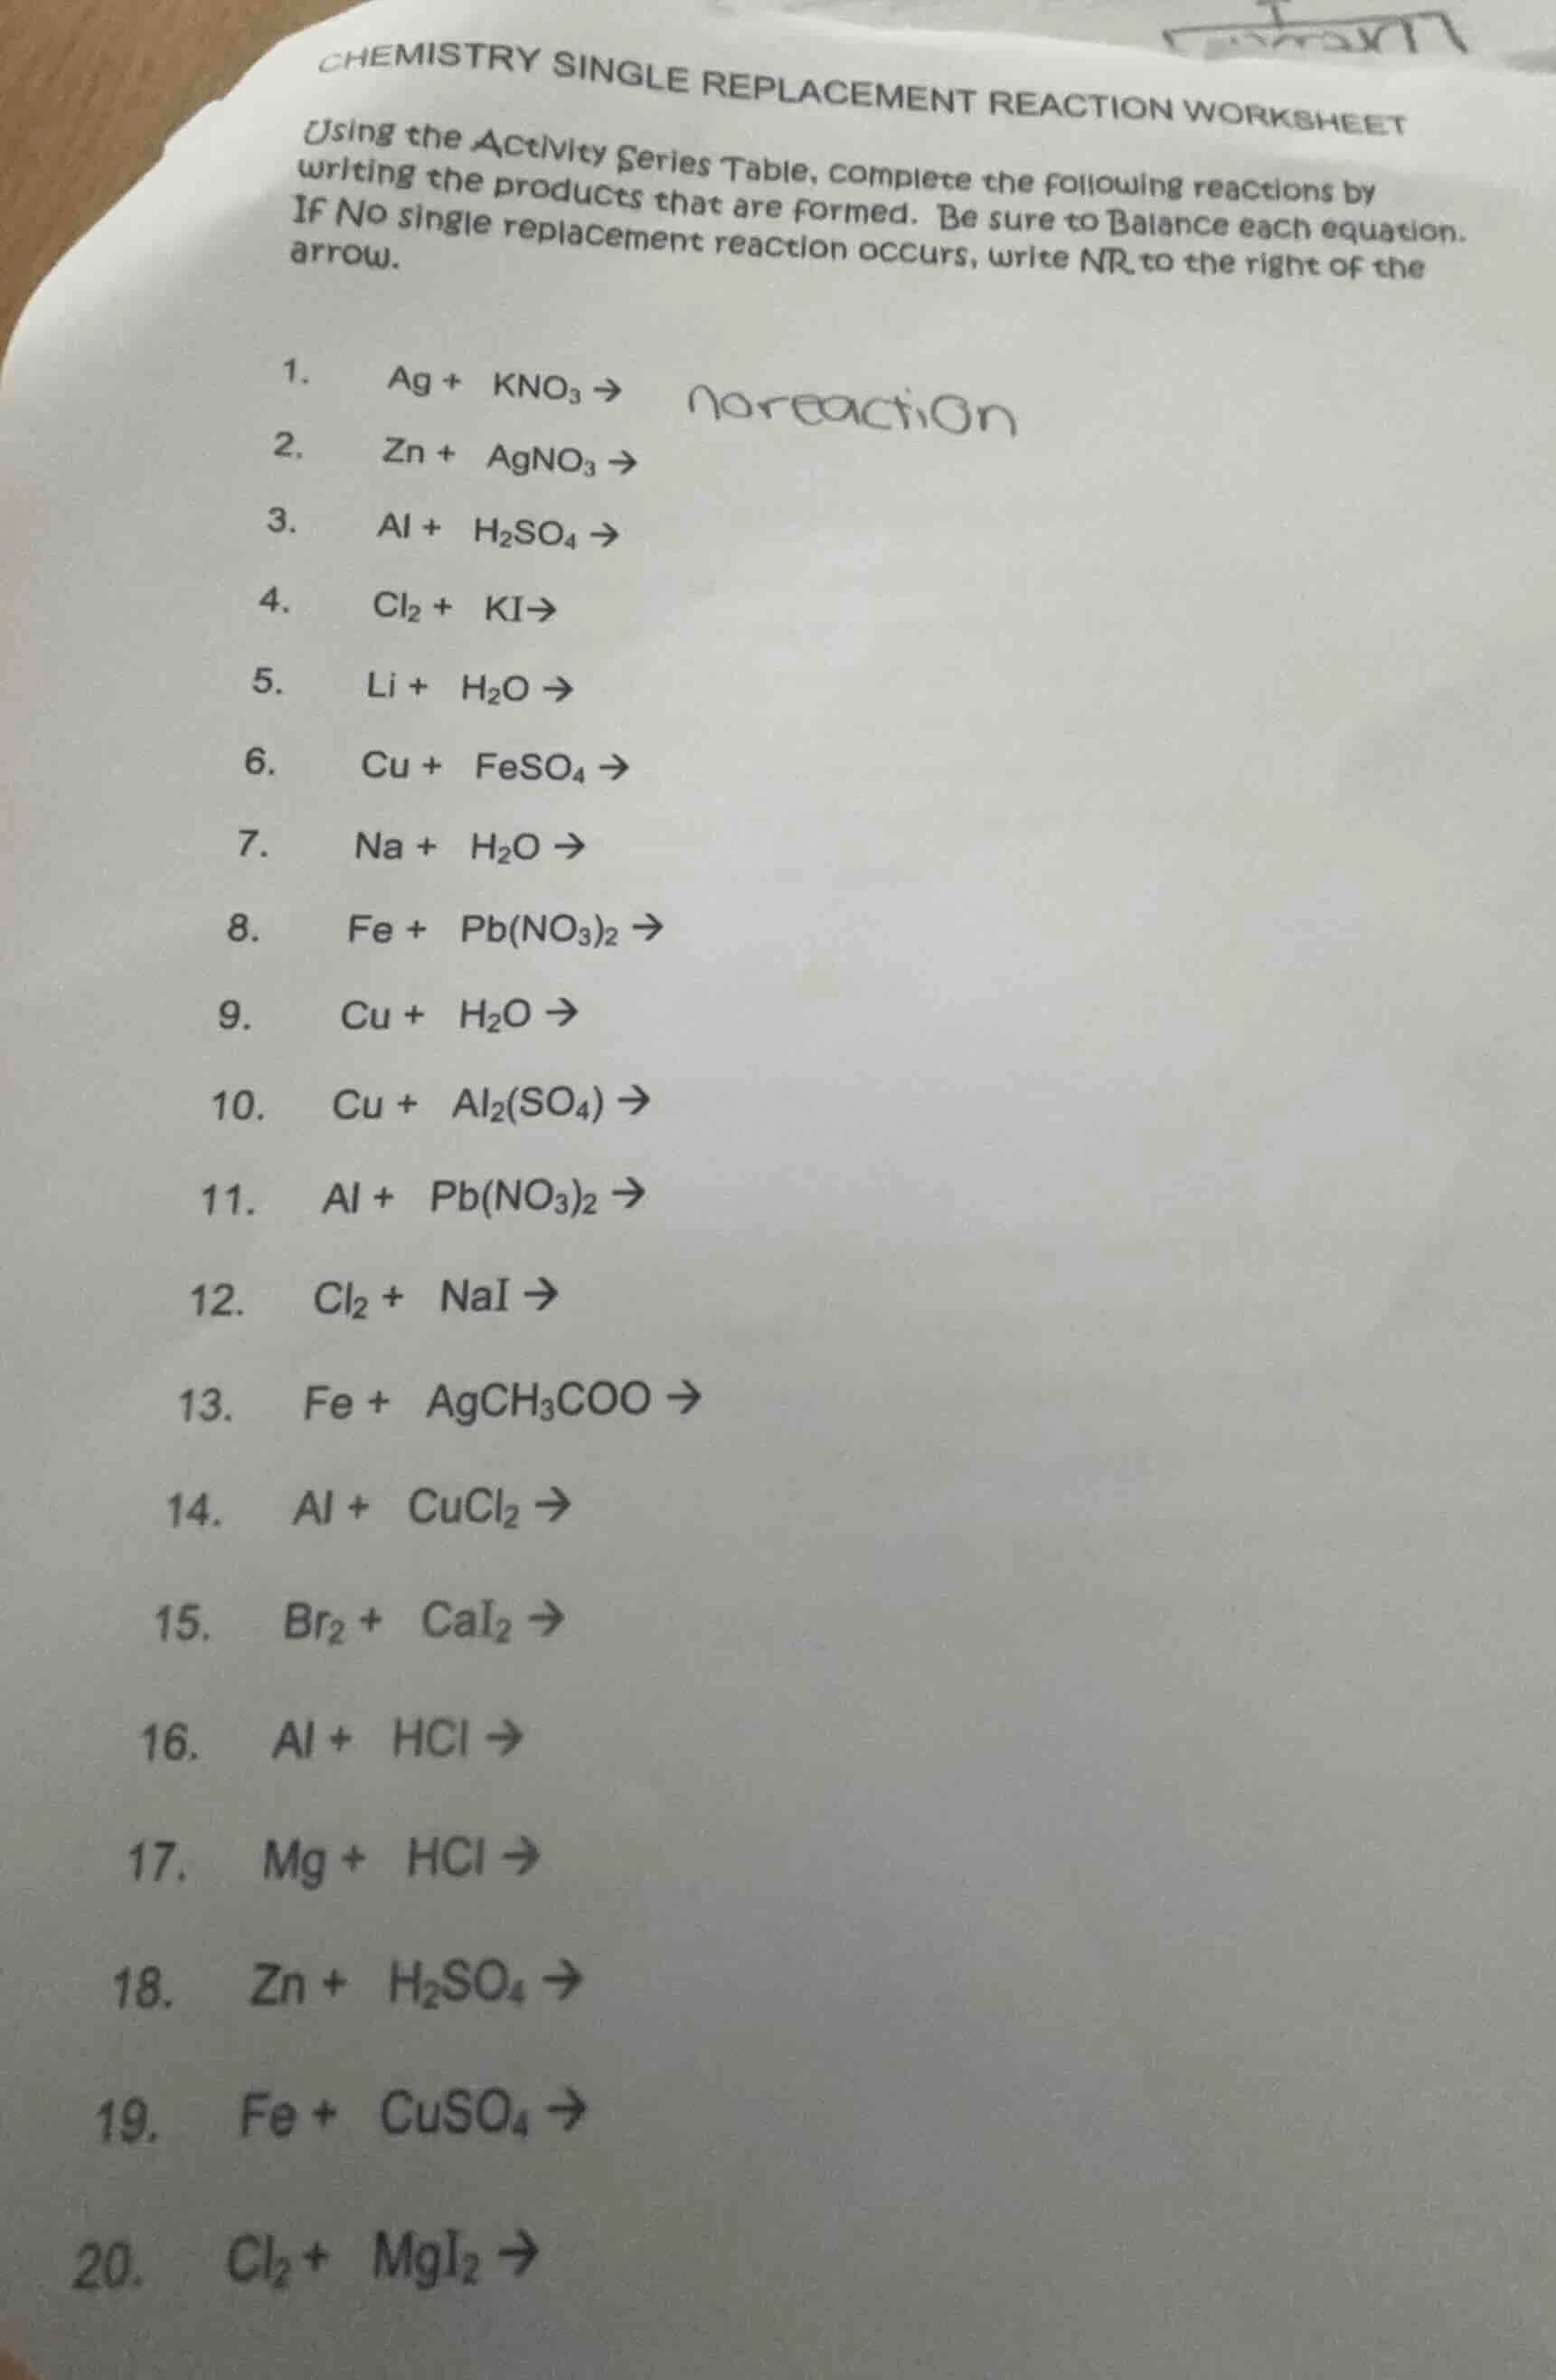 CHEMISTRY SINGLE REPLACEMENT REACTION WORKSHEET
Using the Activity Series Table, complete the following reactions by
writing the products that are formed. Be sure to Balance each equation.
If No single replacement reaction occurs, write NR to the right of the
arrow.
1. Ag + KNO₃ → no reaction
2. Zn + AgNO₃ →
3. Al + H₂SO₄ →
4. Cl₂ + KI→
5. Li + H₂O →
6. Cu + FeSO₄ →
7. Na + H₂O →
8. Fe + Pb(NO₃)₂ →
9. Cu + H₂O →
10. Cu + Al₂(SO₄) →
11. Al + Pb(NO₃)₂ →
12. Cl₂ + NaI →
13. Fe + AgCH₃COO →
14. Al + CuCl₂ →
15. Br₂ + CaI₂ →
16. Al + HCl →
17. Mg + HCl →
18. Zn + H₂SO₄ →
19. Fe + CuSO₄ →
20. Cl₂ + MgI₂ →